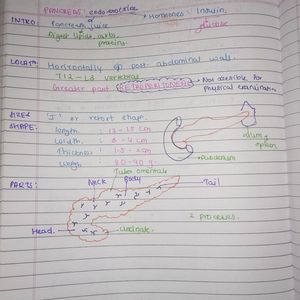 PANCREAS: endo-exocrine → Hormones: Insulin,
INTRO: Pancreatic juice
Digest lipids, carbs, proteins.
LOCATN: Horizontally on post. abdominal wall.
T12 - L3 vertebra
Greater part RETROPERITONEAL → Not accesible for physical examination
SIZE & SHAPE: 'J' or retort shape.
length: 12-15 cm
Width: 3-4 cm
Thickness: 1.5-2 cm
Weigh: 80-90 g.
duodenum
spleen
Tuber omentale
PARTS: Neck Body Tail
2 processes.
Head. uncinate.